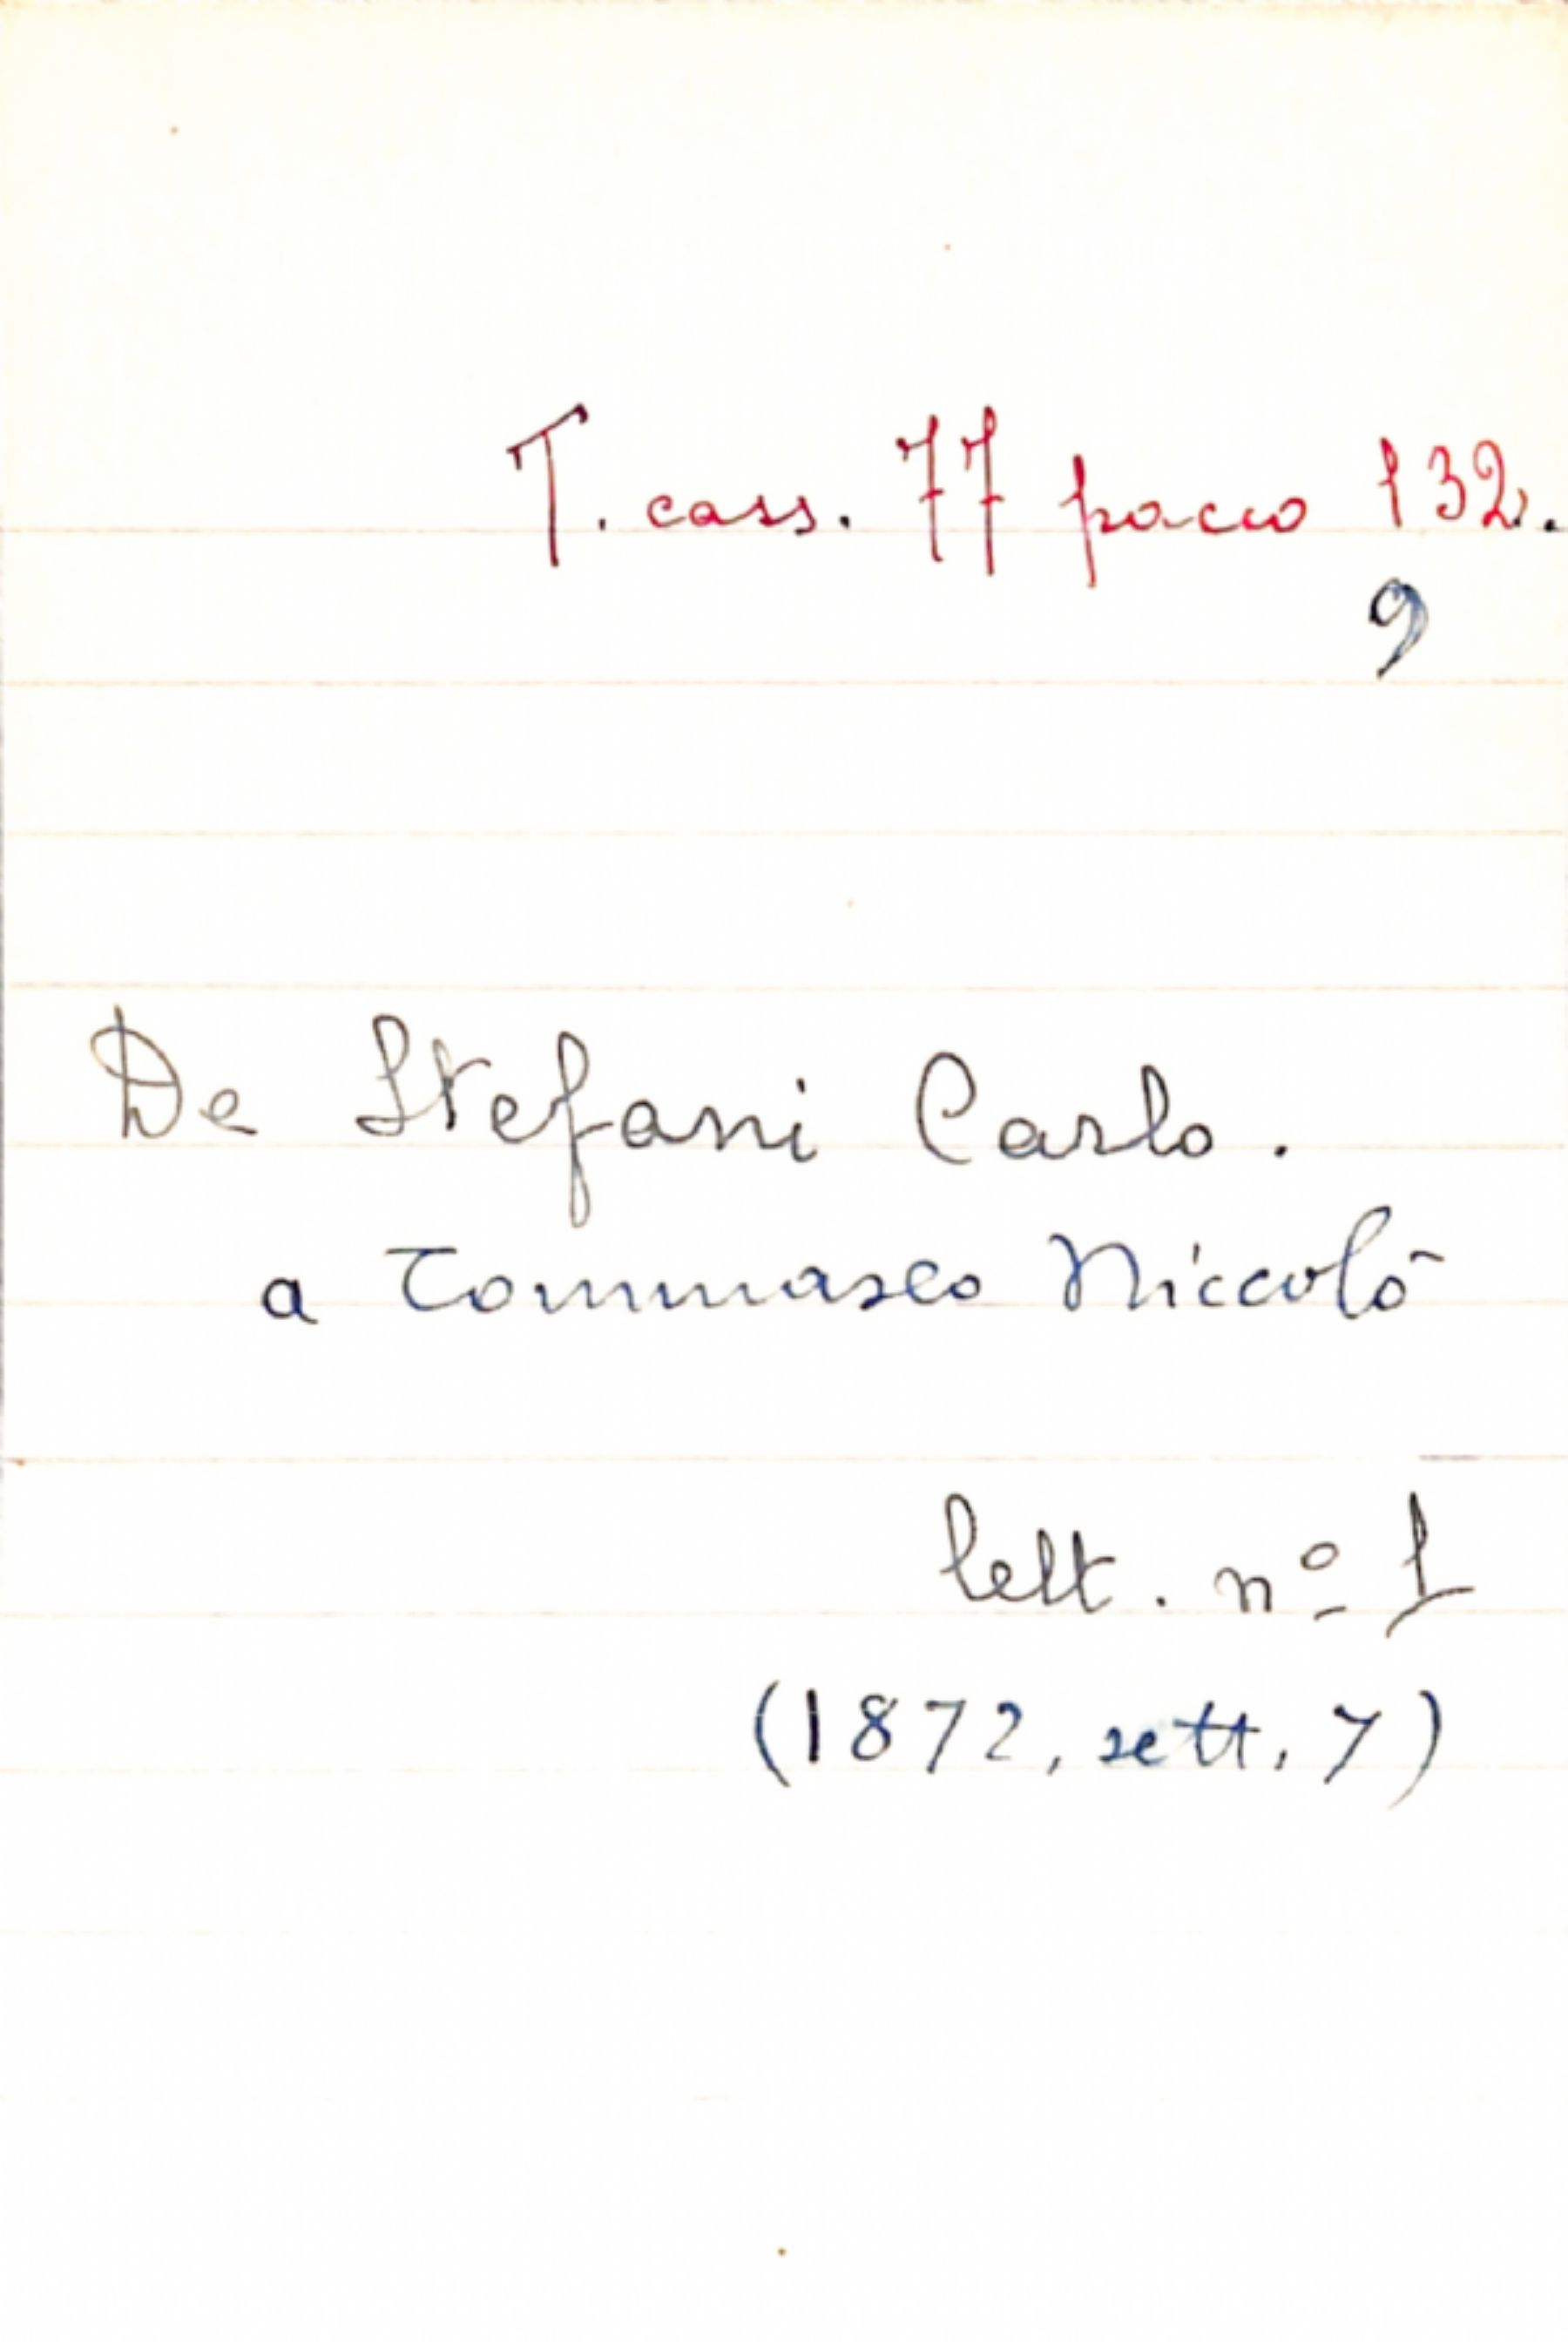 T. cass. 77 pacco 132.
9
De Stefani Carlo.
a Tommaseo Niccolò
lett. nº 1
(1872, sett, 7)